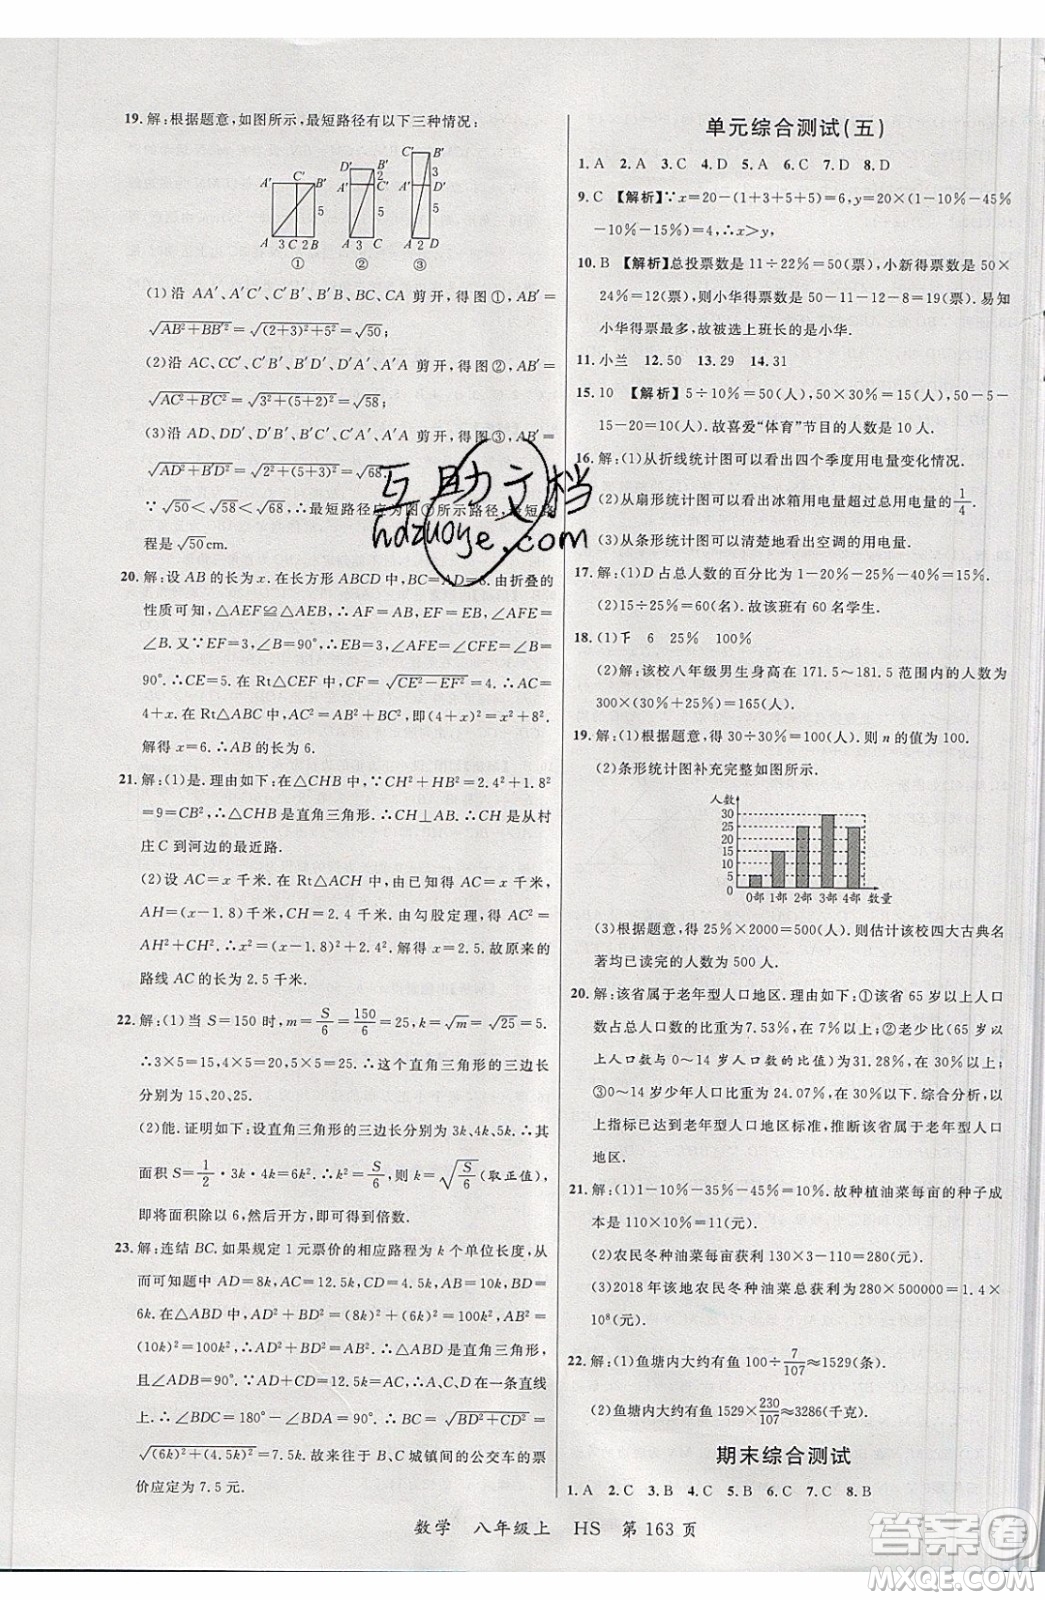 19.解:根据题意,如图所示,最短路径有以下三种情况:
A′ C′ B′ 5 A 3 C 2 B ①
D′ B′ 2 A′ C′ 5 A 3 C ②
C′ B′ 3 A′ D′ 5 A 2 D ③
(1)沿 AA′、A′C′、C′B′、B′B、BC、CA 剪开,得图①,AB′=
√(AB²+BB′²)=√((2+3)²+5²)=√50;
(2)沿 AC、CC′、C′B′、B′D′、D′A′、A′A 剪开,得图②,AB′=
√(AC²+B′C²)=√(3²+(5+2)²)=√58;
(3)沿 AD、DD′、D′B′、B′C′、C′A′、A′A 剪开,得图③,AB′=
√(AD²+B′D²)=√(2²+(5+3)²)=√68.
∵√50<√58<√68,∴最短路径应为图①所示路径,最短路
程是√50cm.
20.解:设 AB 的长为 x.在长方形 ABCD 中,BC=AD=8.由折叠的
性质可知,△AEF≌△AEB,∴AF=AB,EF=EB,∠AFE=
∠B.又∵EB=3,∠B=90°,∴EF=EB=3,∠AFE=∠CFE=∠B=
90°.∴CE=5.在 Rt△CEF 中,CF=√(CE²−EF²)=4.∴AC=
4+x.在 Rt△ABC 中,AC²=AB²+BC²,即(4+x)²=x²+8².
解得 x=6.∴AB 的长为 6.
21.解:(1)是.理由如下:在△CHB 中,∵CH²+HB²=2.4²+1.8²
=9=CB²,∴△CHB 是直角三角形.∴CH⊥AB.∴CH 是从村
庄 C 到河边的最近路.
(2)设 AC=x 千米.在 Rt△ACH 中,由已知得 AC=x 千米,
AH=(x−1.8)千米,CH=2.4 千米.由勾股定理,得 AC²=
AH²+CH².∴x²=(x−1.8)²+2.4².解得 x=2.5.故原来的
路线 AC 的长为 2.5 千米.
22.解:(1)当 S=150 时,m=S/6=150/6=25,k=√m=√25=5.
∴3×5=15,4×5=20,5×5=25.∴这个直角三角形的三边长
分别为 15、20、25.
(2)能.证明如下:设直角三角形的三边长分别为 3k、4k、5k,其
面积 S=1/2·3k·4k=6k².∴k²=S/6,则 k=√(S/6)(取正值),
即将面积除以 6,然后开方,即可得到倍数.
23.解:连结 BC.如果规定 1 元票价的相应路程为 k 个单位长度,从
而可知题中 AD=8k,AC=12.5k,CD=4.5k,AB=10k,BD=
6k.在△ABD 中,AD²+BD²=(8k)²+(6k)²=100k²,AB²=
(10k)²=100k².∴AD²+BD²=AB².∴△ABD 是直角三角形,
且∠ADB=90°.∵AD+CD=AC,∴点 A、D、C 在一条直线
上.∴∠BDC=180°−∠ADB=90°.∴BC=√(BD²+CD²)=
√((6k)²+(4.5k)²)=7.5k.故往来于 B、C 城镇间的公交车的票
价应定为 7.5 元.
单元综合测试(五)
1.A 2.A 3.C 4.D 5.A 6.C 7.D 8.D
9.C 【解析】∵x=20−(1+3+5+5)=6,y=20×(1−10%−45%
−10%−15%)=4,∴x>y,
10.B 【解析】总投票数是 11÷22%=50(票),小新得票数是 50×
24%=12(票),则小华得票数是 50−11−12−8=19(票).易知
小华得票最多,故被选上班长的是小华.
11.小兰 12.50 13.29 14.31
15.10 【解析】5÷10%=50(人),50×30%=15(人),50−5−
15−20=10(人).故喜爱“体育”节目的人数是 10 人.
16.解:(1)从折线统计图可以看出四个季度用电量变化情况.
(2)从扇形统计图可以看出冰箱用电量超过总用电量的1/4.
(3)从条形统计图可以清楚地看出空调的用电量.
17.解:(1)D 占总人数的百分比为 1−20%−25%−40%=15%.
(2)15÷25%=60(名).故该班有 60 名学生.
18.(1)𠄌 6 25% 100%
(2)解:该校八年级男生身高在 171.5~181.5 范围内的人数为
300×(30%+25%)=165(人).
19.解:(1)根据题意,得 30÷30%=100(人).所以 n 的值为 100.
(2)条形统计图补充完整如图所示.
人数
30
25
20
15
10
5
0
0部 1部 2部 3部 4部 数量
(3)根据题意,得 25%×2000=500(人).则估计该校四大古典名
著均已读完的人数为 500 人.
20.解:该省属于老年型人口地区.理由如下:①该省 65 岁以上人口
数占总人口数的比重为 7.53%,在 7%以上;②老少比(65 岁以
上人口数与 0~14 岁人口数的比值)为 31.28%,在 30%以上;
③0~14 岁少年人口比重为 24.07%,在 30%以下.综合分析,以
以上数据均符合老年型人口地区标准,推断该省属于老年型人口
地区.
21.解:(1)1−10%−35%−45%=10%,故种植油菜每亩的种子成
本是 110×10%=11(元).
(2)农民冬种油菜每亩获利 130×3−110=280(元).
(3)2018 年该地农民冬种油菜总获利 280×500000=1.4×
10⁸(元).
22.解:(1)鱼塘内大约有鱼 100÷7/107≈1529(条).
(2)鱼塘内大约有鱼 1529×230/107≈3286(千克).
期末综合测试
1.A 2.C 3.B 4.C 5.B 6.B 7.C 8.B
数学 八年级上 HS 第 163 页
互助文档
hdzuoye.com
答案圈
MXQE.COM